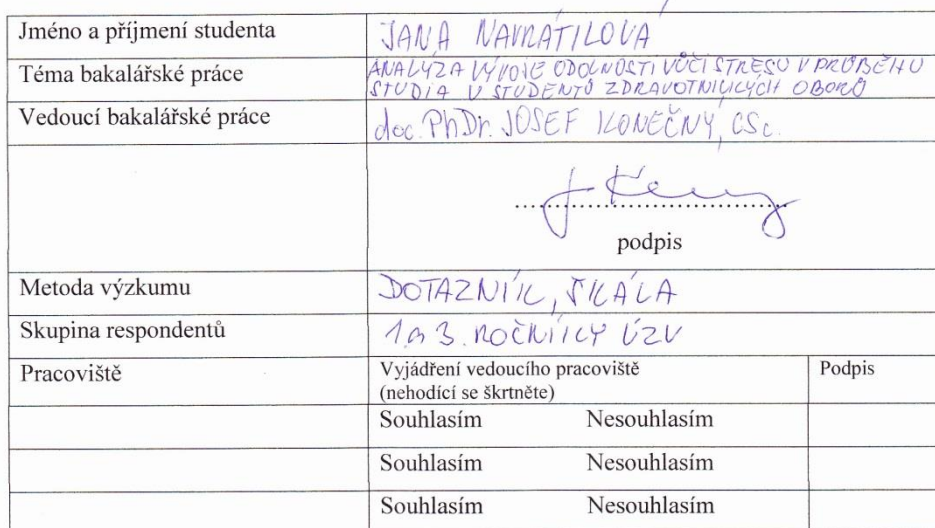 Jméno a příjmení studenta JANA NAVRÁTILOVÁ
Téma bakalářské práce ANALÝZA VÝVOJE ODOLNOSTI VŮČI STRESU V PRŮBĚHU
STUDIA U STUDENTŮ ZDRAVOTNICKÝCH OBORŮ
Vedoucí bakalářské práce doc. PhDr. JOSEF KONEČNÝ, CSc.
podpis
Metoda výzkumu DOTAZNÍK, ŠKÁLA
Skupina respondentů 1. a 3. ROČNÍKY ÚZV
Pracoviště Vyjádření vedoucího pracoviště Podpis
(nehodící se škrtněte)
Souhlasím Nesouhlasím
Souhlasím Nesouhlasím
Souhlasím Nesouhlasím